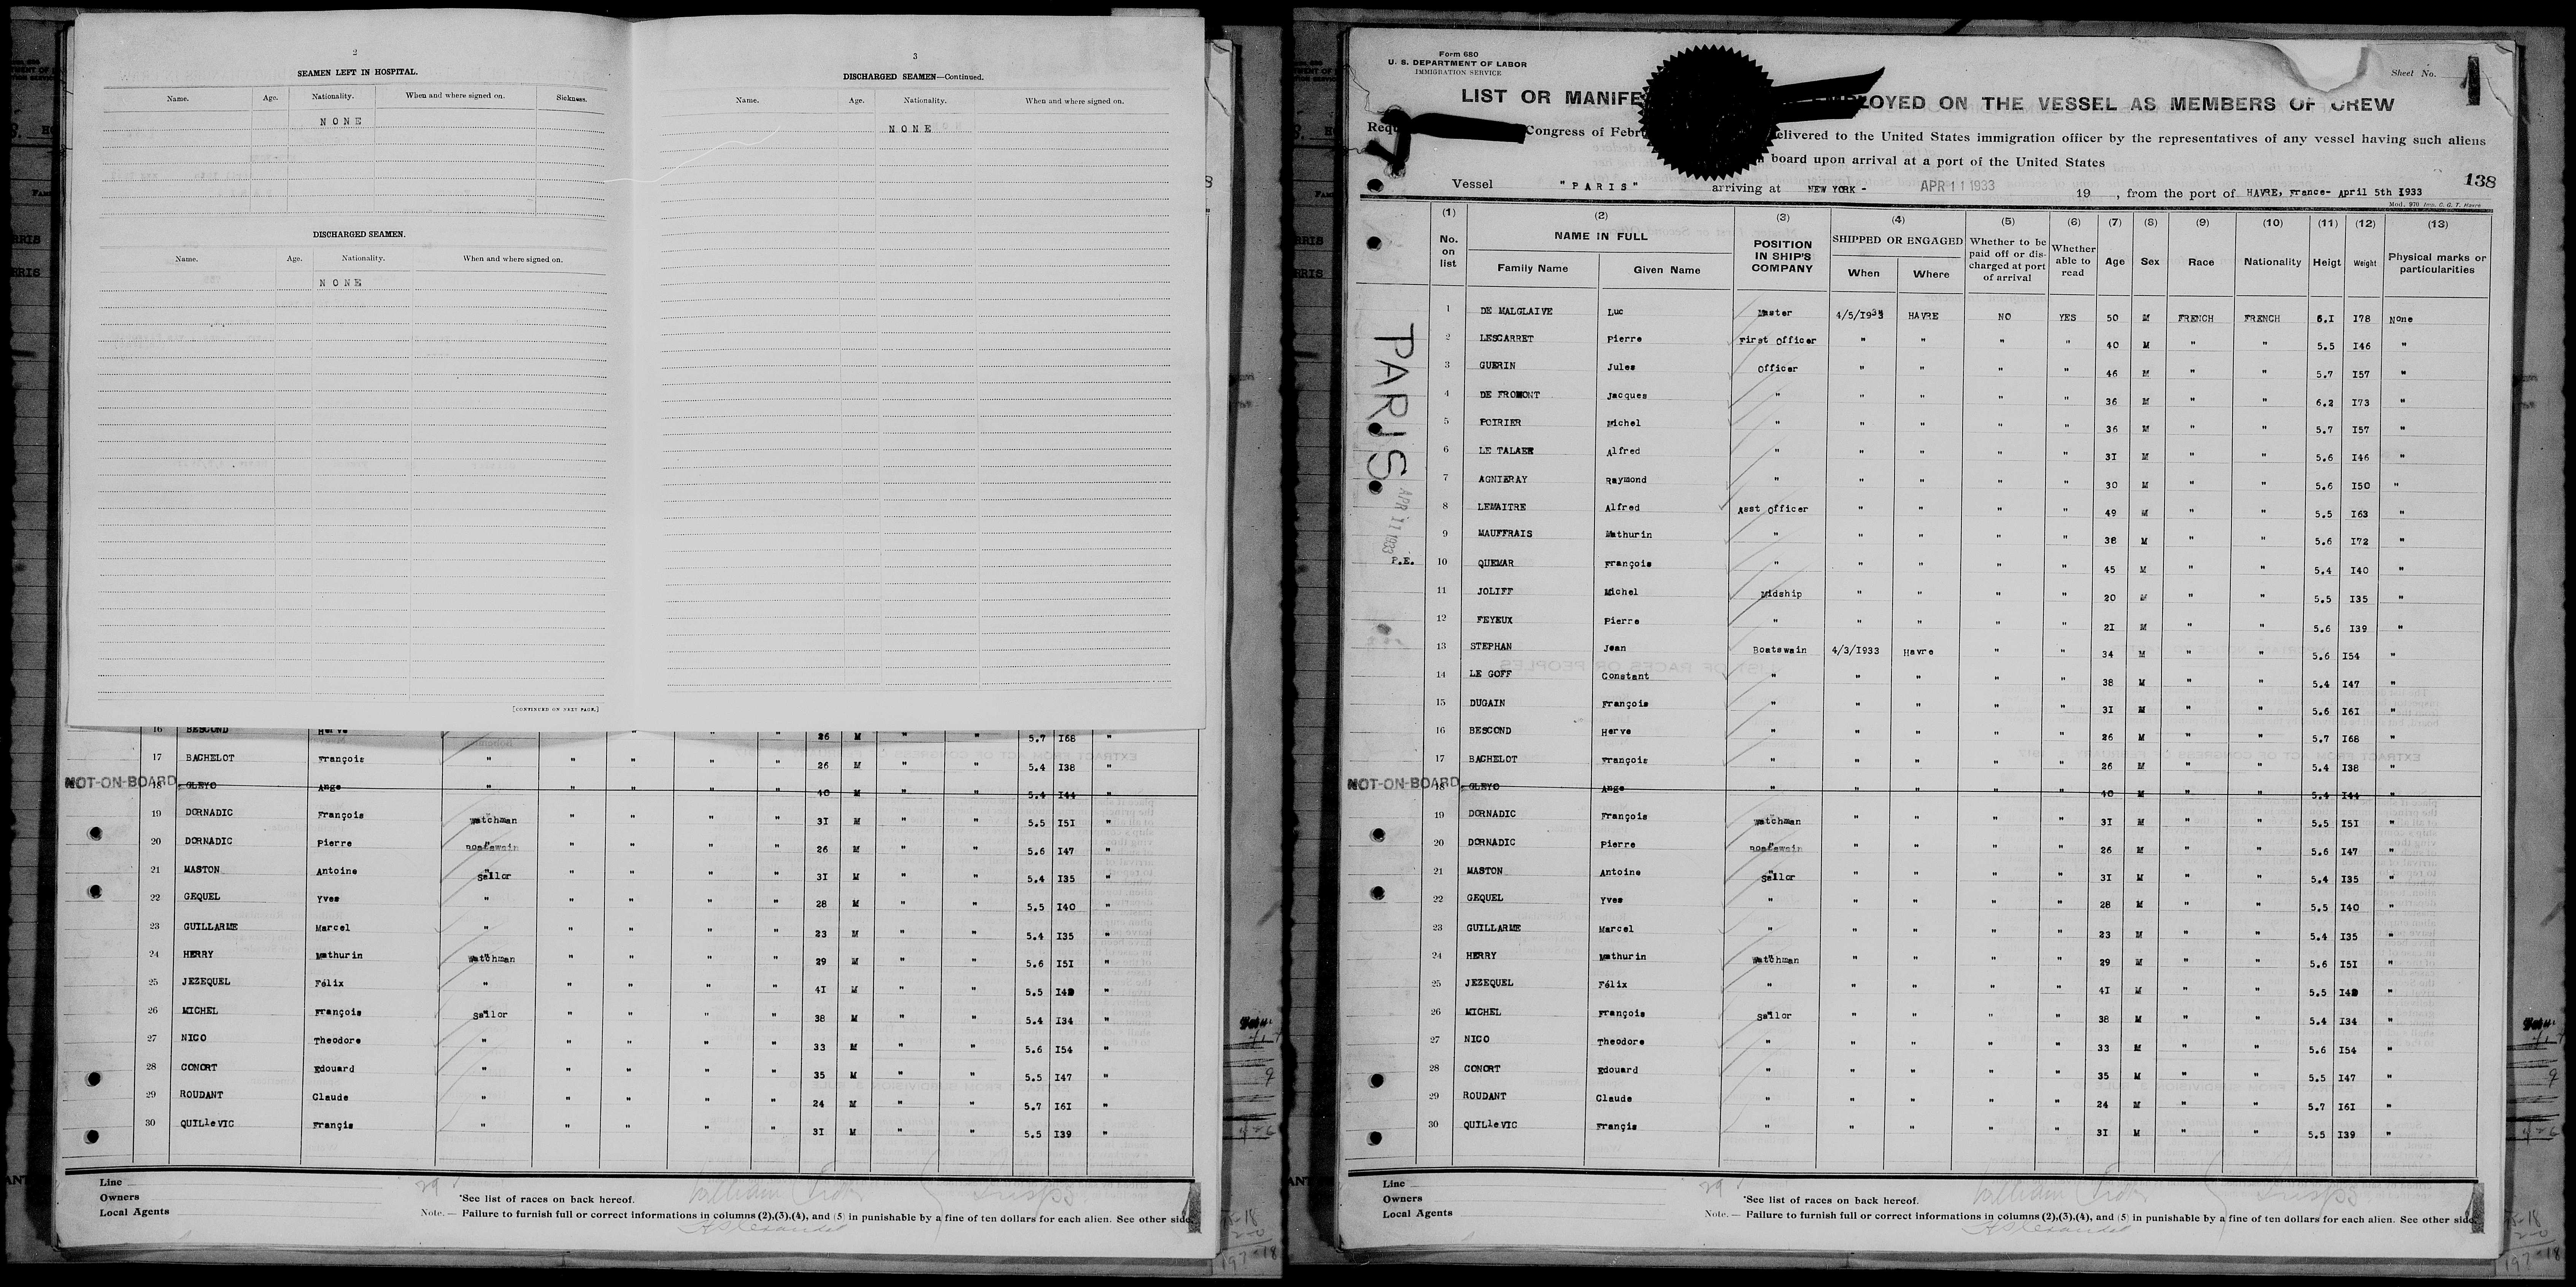 2
SEAMEN LEFT IN HOSPITAL.
Name. Age. Nationality. When and where signed on. Sickness.
NONE
DISCHARGED SEAMEN.
Name. Age. Nationality. When and where signed on.
NONE
[CONTINUED ON NEXT PAGE.]
3
DISCHARGED SEAMEN—Continued.
Name. Age. Nationality. When and where signed on.
NONE
16 BESCOND Herve 26 M " " 5.7 I68 "
17 BACHELOT François " " " " " 26 M " " 5.4 I38 "
NOT-ON-BOARD 18 GLEYO Ange " " " " " 40 M " " 5.4 I44 "
19 DORNADIC François Watchman " " " " 3I M " " 5.5 I5I "
20 DORNADIC Pierre Boatswain " " " " 26 M " " 5.6 I47 "
21 MASTON Antoine Sailor " " " " 3I M " " 5.4 I35 "
22 GEQUEL Yves " " " " " 28 M " " 5.5 I40 "
23 GUILLARME Marcel " " " " " 23 M " " 5.4 I35 "
24 HERRY Mathurin Watchman " " " " 29 M " " 5.6 I5I "
25 JEZEQUEL Félix " " " " " 4I M " " 5.5 "
26 MICHEL François Sailor " " " " 38 M " " 5.4 I34 "
27 NICO Theodore " " " " " 33 M " " 5.6 I54 "
28 CONORT Edouard " " " " " 35 M " " 5.5 I47 "
29 ROUDANT Claude " " " " " 24 M " " 5.7 I6I "
30 QUILleVIC Françis " " " " " 3I M " " 5.5 I39 "
Line
Owners
Local Agents
29
*See list of races on back hereof.
Note. — Failure to furnish full or correct informations in columns (2),(3),(4), and (5) in punishable by a fine of ten dollars for each alien. See other side
Form 680
U. S. DEPARTMENT OF LABOR
IMMIGRATION SERVICE
Sheet No. 1
LIST OR MANIFE EMPLOYED ON THE VESSEL AS MEMBERS OF CREW
Congress of Febru delivered to the United States immigration officer by the representatives of any vessel having such aliens
board upon arrival at a port of the United States
138
Vessel "PARIS" arriving at NEW YORK - APR 11 1933 19 , from the port of HAVRE, France- April 5th I933
Mod. 970 Imp. C. G. T. Havre
(1) (2) (3) (4) (5) (6) (7) (8) (9) (10) (11) (12) (13)
No. on list NAME IN FULL Family Name Given Name POSITION IN SHIP'S COMPANY SHIPPED OR ENGAGED When Where Whether to be paid off or discharged at port of arrival Whether able to read Age Sex Race Nationality Heigt Weight Physical marks or particularities
PARIS
APR 11 1933
1 DE MALGLAIVE Luc Master 4/5/I933 HAVRE NO YES 50 M FRENCH FRENCH 6.I I78 None
2 LESCARRET Pierre First Officer " " " " 40 M " " 5.5 I46 "
3 GUERIN Jules Officer " " " " 46 M " " 5.7 I57 "
4 DE FROMONT Jacques " " " " " 36 M " " 6.2 I73 "
5 POIRIER Michel " " " " " 36 M " " 5.7 I57 "
6 LE TALAER Alfred " " " " " 3I M " " 5.6 I46 "
7 AGNIERAY Raymond " " " " " 30 M " " 5.6 I50 "
8 LEMAITRE Alfred Asst Officer " " " " 49 M " " 5.5 I63 "
9 MAUFFRAIS Mathurin " " " " " 38 M " " 5.6 I72 "
P.E. 10 QUEMAR François " " " " " 45 M " " 5.4 I40 "
11 JOLIFF Michel Midship " " " " 20 M " " 5.5 I35 "
12 FEYEUX Pierre " " " " " 2I M " " 5.6 I39 "
13 STEPHAN Jean Boatswain 4/3/I933 Havre " " 34 M " " 5.6 I54 "
14 LE GOFF Constant " " " " " 38 M " " 5.4 I47 "
15 DUGAIN François " " " " " 3I M " " 5.6 I6I "
16 BESCOND Herve " " " " " 26 M " " 5.7 I68 "
17 BACHELOT François " " " " " 26 M " " 5.4 I38 "
NOT-ON-BOARD 18 GLEYO Ange " " " " " 40 M " " 5.4 I44 "
19 DORNADIC François Watchman " " " " 3I M " " 5.5 I5I "
20 DORNADIC Pierre Boatswain " " " " 26 M " " 5.6 I47 "
21 MASTON Antoine Sailor " " " " 3I M " " 5.4 I35 "
22 GEQUEL Yves " " " " " 28 M " " 5.5 I40 "
23 GUILLARME Marcel " " " " " 23 M " " 5.4 I35 "
24 HERRY Mathurin Watchman " " " " 29 M " " 5.6 I5I "
25 JEZEQUEL Félix " " " " " 4I M " " 5.5 "
26 MICHEL François Sailor " " " " 38 M " " 5.4 I34 "
27 NICO Theodore " " " " " 33 M " " 5.6 I54 "
28 CONORT Edouard " " " " " 35 M " " 5.5 I47 "
29 ROUDANT Claude " " " " " 24 M " " 5.7 I6I "
30 QUILleVIC Françis " " " " " 3I M " " 5.5 I39 "
Line
Owners
Local Agents
29
*See list of races on back hereof.
Note. — Failure to furnish full or correct informations in columns (2),(3),(4), and (5) in punishable by a fine of ten dollars for each alien. See other side